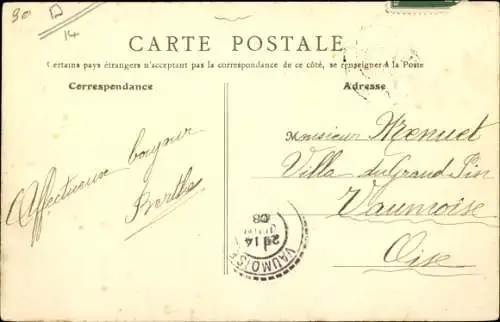 30
14
CARTE POSTALE
Certains pays étrangers n'acceptant pas la correspondance de ce côté, se renseigner à la Poste
Correspondance
Adresse
Affectueux bonjour
Berthe
Monsieur Menuet
Villa du Grand Pin
Vaumoise
Oise
VAUMOISE
14
08